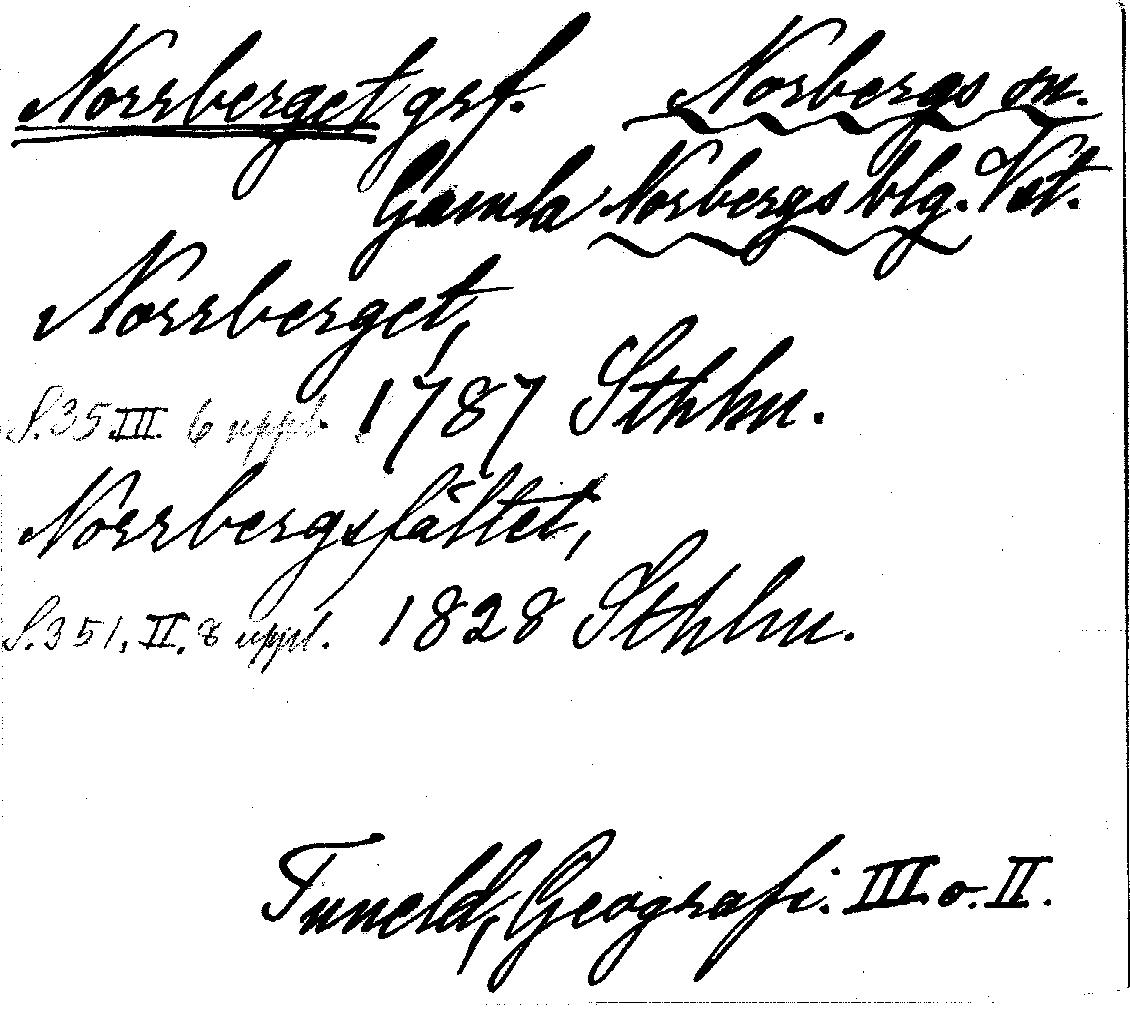 Norrberget grf. Norbergs sn.
Gamla Norbergs blg. Vstl.
Norrberget,
S. 35 III. 6 uppl. 1787 Sthlm.
Norrbergsfältet,
S. 351. II. 8 uppl. 1828 Sthlm.
Tuneld, Geografi. III o. II.